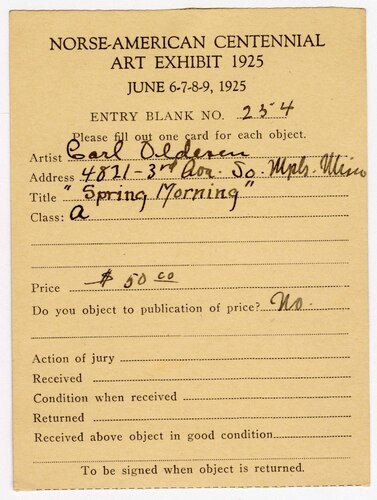 NORSE-AMERICAN CENTENNIAL
ART EXHIBIT 1925
JUNE 6-7-8-9, 1925
ENTRY BLANK NO. 254
Please fill out one card for each object.
Artist Carl Oldesen
Address 4821-3rd Ave. So. Mpls. Minn
Title "Spring Morning"
Class: A
Price $ 50 00
Do you object to publication of price? No.
Action of jury
Received
Condition when received
Returned
Received above object in good condition
To be signed when object is returned.